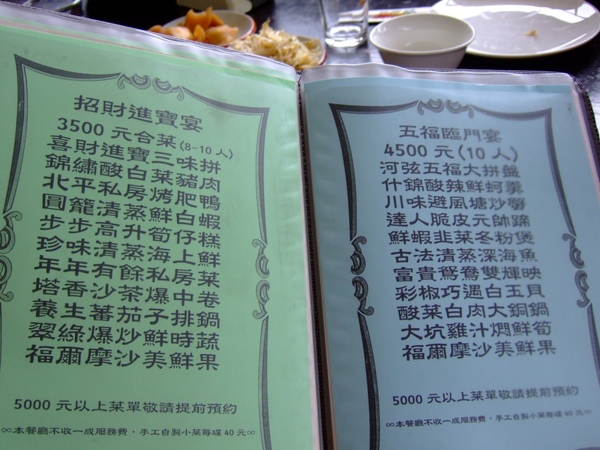 招財進寶宴
3500 元合菜(8-10人)
喜財進寶三味拼
錦繡酸白菜豬肉
北平私房烤肥鴨
圓籠清蒸鮮白蝦
步步高升筍仔糕
珍味清蒸海上鮮
年年有餘私房菜
塔香沙茶爆中卷
養生蕃茄子排鍋
翠綠爆炒鮮時蔬
福爾摩沙美鮮果
5000 元以上菜單敬請提前預約
∞本餐廳不收一成服務費，手工自製小菜每碟 40 元∞
五福臨門宴
4500 元(10 人)
河弦五福大拼盤
什錦酸辣鮮蚵羹
川味避風塘炒蟹
達人脆皮元帥蹄
鮮蝦韭菜冬粉煲
古法清蒸深海魚
富貴鴛鴦雙輝映
彩椒巧遇白玉貝
酸菜白肉大銅鍋
大坑雞汁燜鮮筍
福爾摩沙美鮮果
5000 元以上菜單敬請提前預約
∞本餐廳不收一成服務費，手工自製小菜每碟 40 元∞